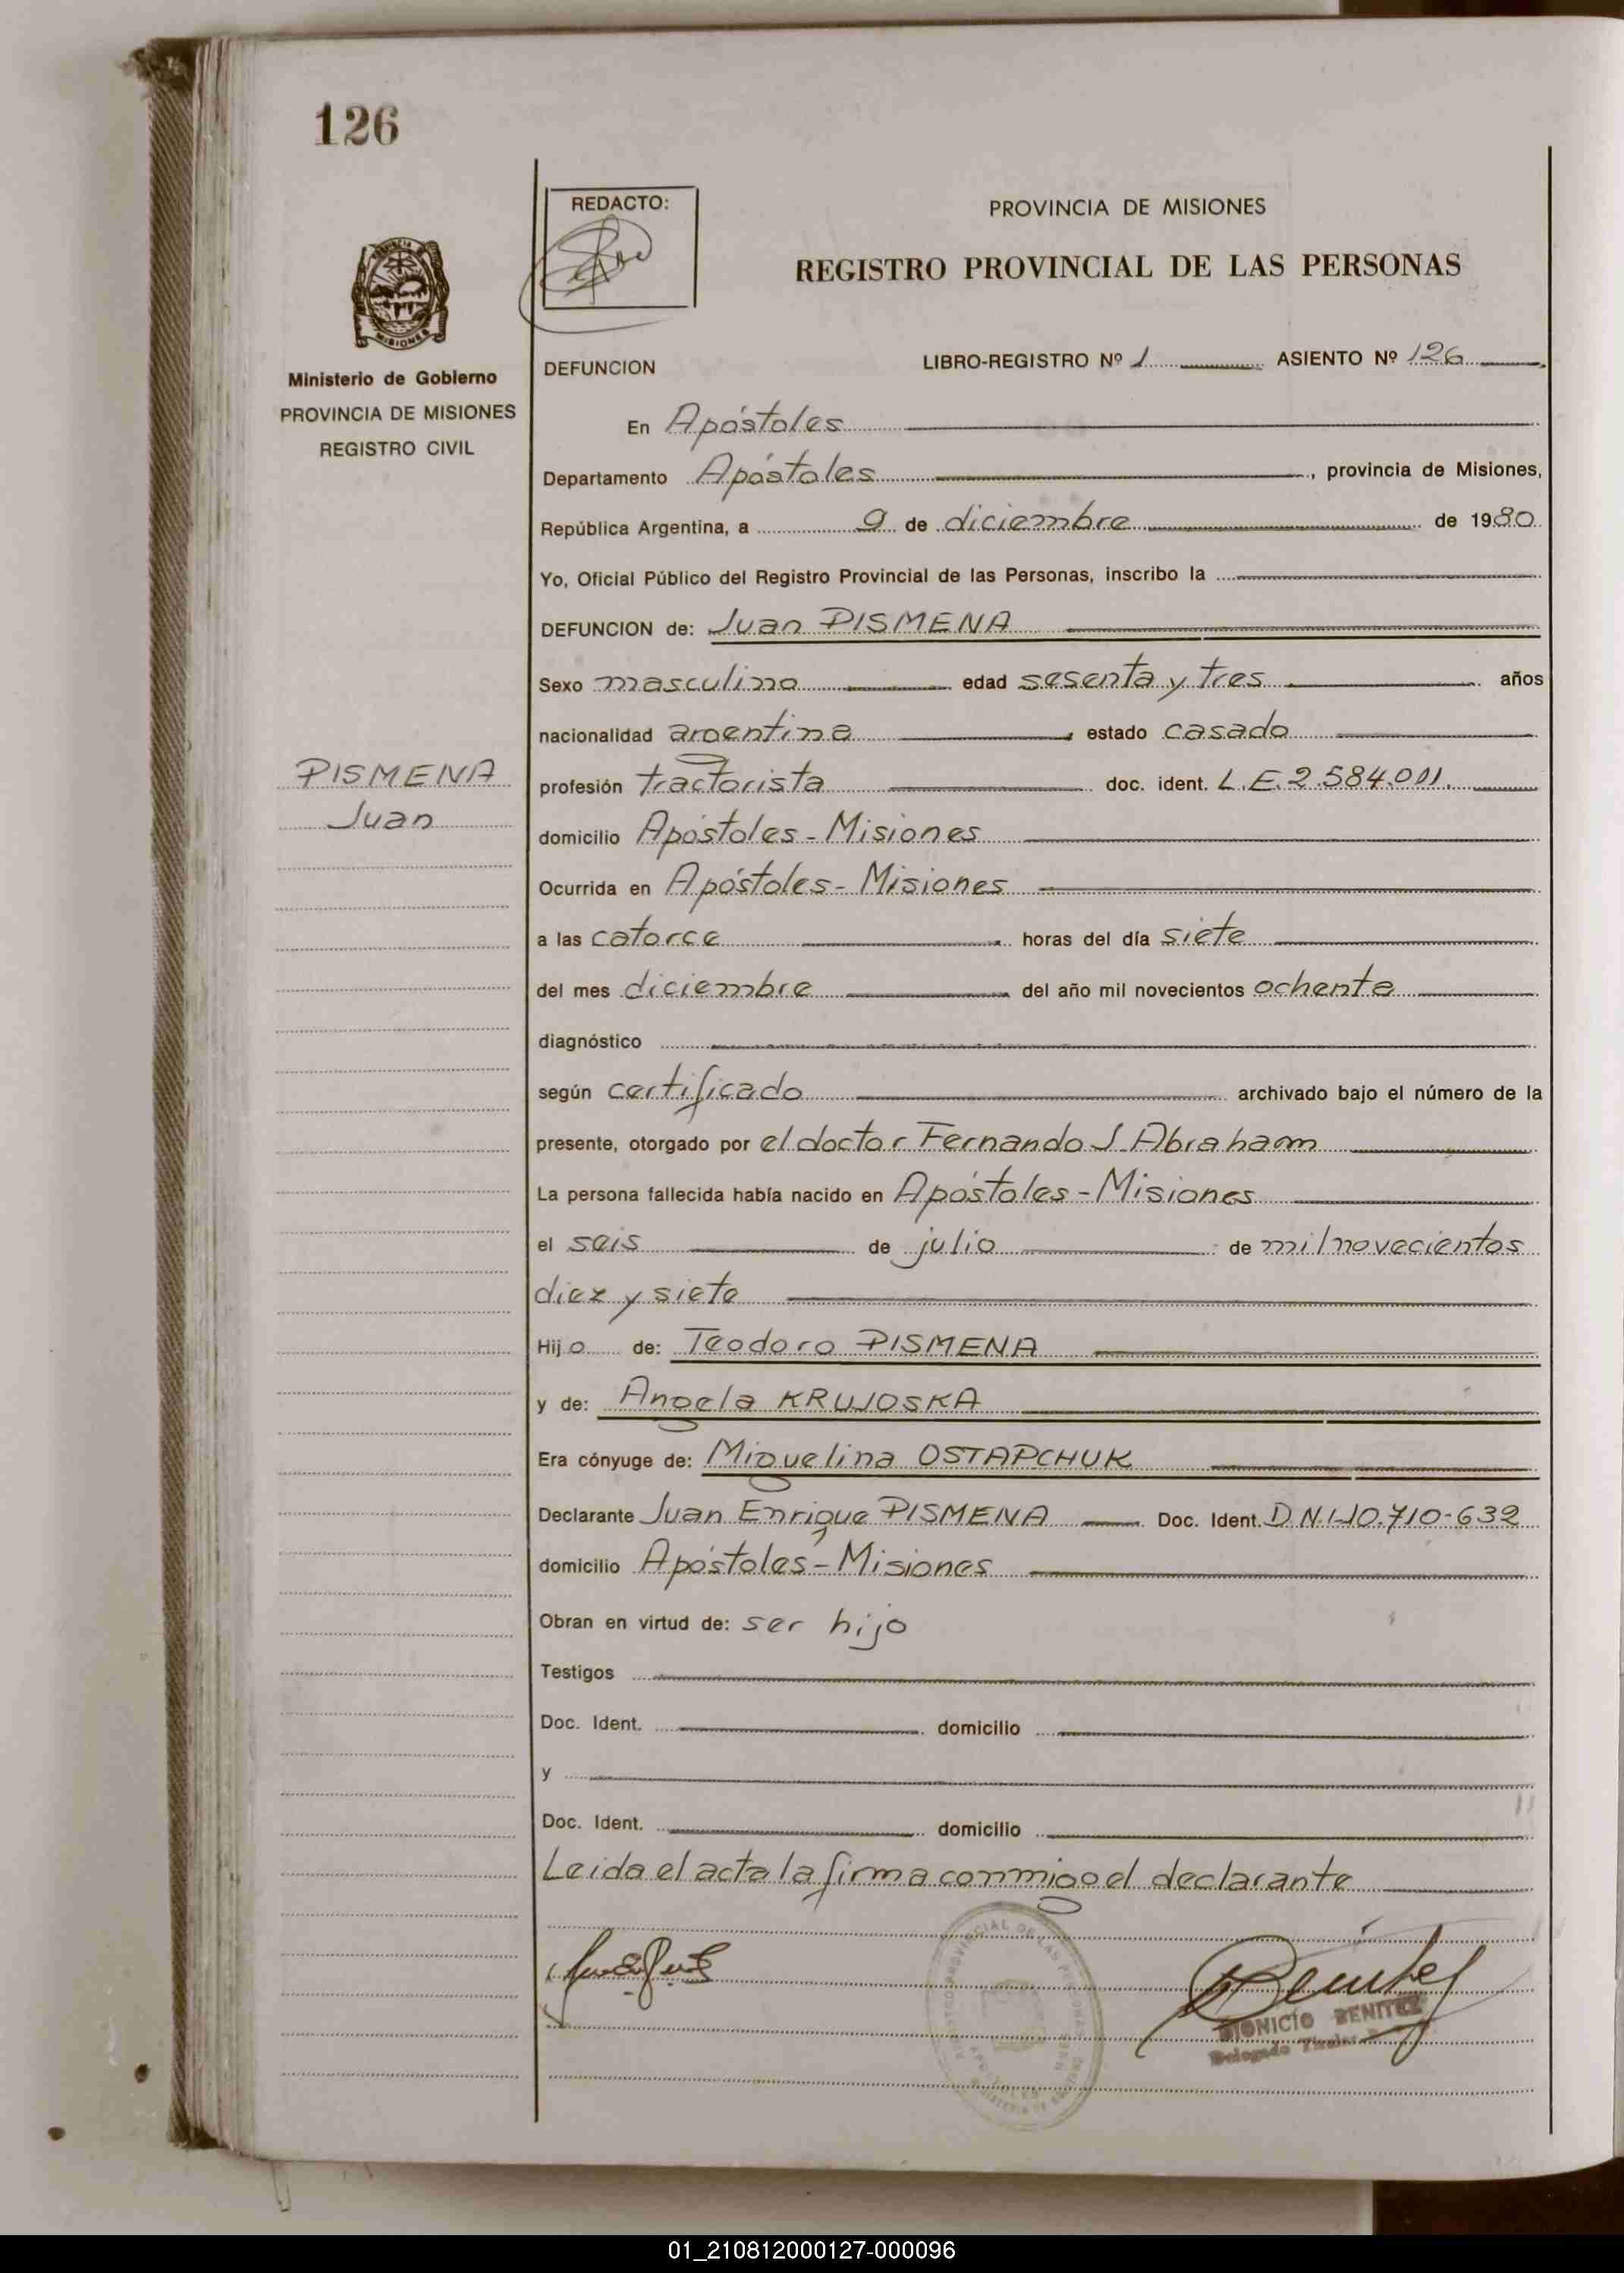 126
REDACTO:
PROVINCIA DE MISIONES
REGISTRO PROVINCIAL DE LAS PERSONAS
MISIONES
Ministerio de Gobierno
PROVINCIA DE MISIONES
REGISTRO CIVIL
DEFUNCION LIBRO-REGISTRO Nº 1 ASIENTO Nº 126
En Apóstoles
Departamento Apóstoles, provincia de Misiones,
República Argentina, a 9 de diciembre de 1980
Yo, Oficial Público del Registro Provincial de las Personas, inscribo la
DEFUNCION de: Juan PISMENA
Sexo masculino edad sesenta y tres años
nacionalidad argentina, estado casado
PISMENA
Juan
profesión tractorista doc. ident. L.E.2.584.011.
domicilio Apóstoles - Misiones
Ocurrida en Apóstoles - Misiones
a las catorce horas del día siete
del mes diciembre del año mil novecientos ochenta
diagnóstico
según certificado archivado bajo el número de la
presente, otorgado por el doctor Fernando J. Abraham
La persona fallecida había nacido en Apóstoles - Misiones
el seis de julio de mil novecientos
diez y siete
Hijo de: Teodoro PISMENA
y de: Angela KRUJOSKA
Era cónyuge de: Miguelina OSTAPCHUK
Declarante Juan Enrique PISMENA Doc. Ident. D.N.I.10.710-632
domicilio Apóstoles - Misiones
Obran en virtud de: ser hijo
Testigos
Doc. Ident. domicilio
y
Doc. Ident. domicilio
Leida el acta la firma conmigo el declarante
Benitez
DIONICIO BENITEZ
Delegado Titular
01_210812000127-000096